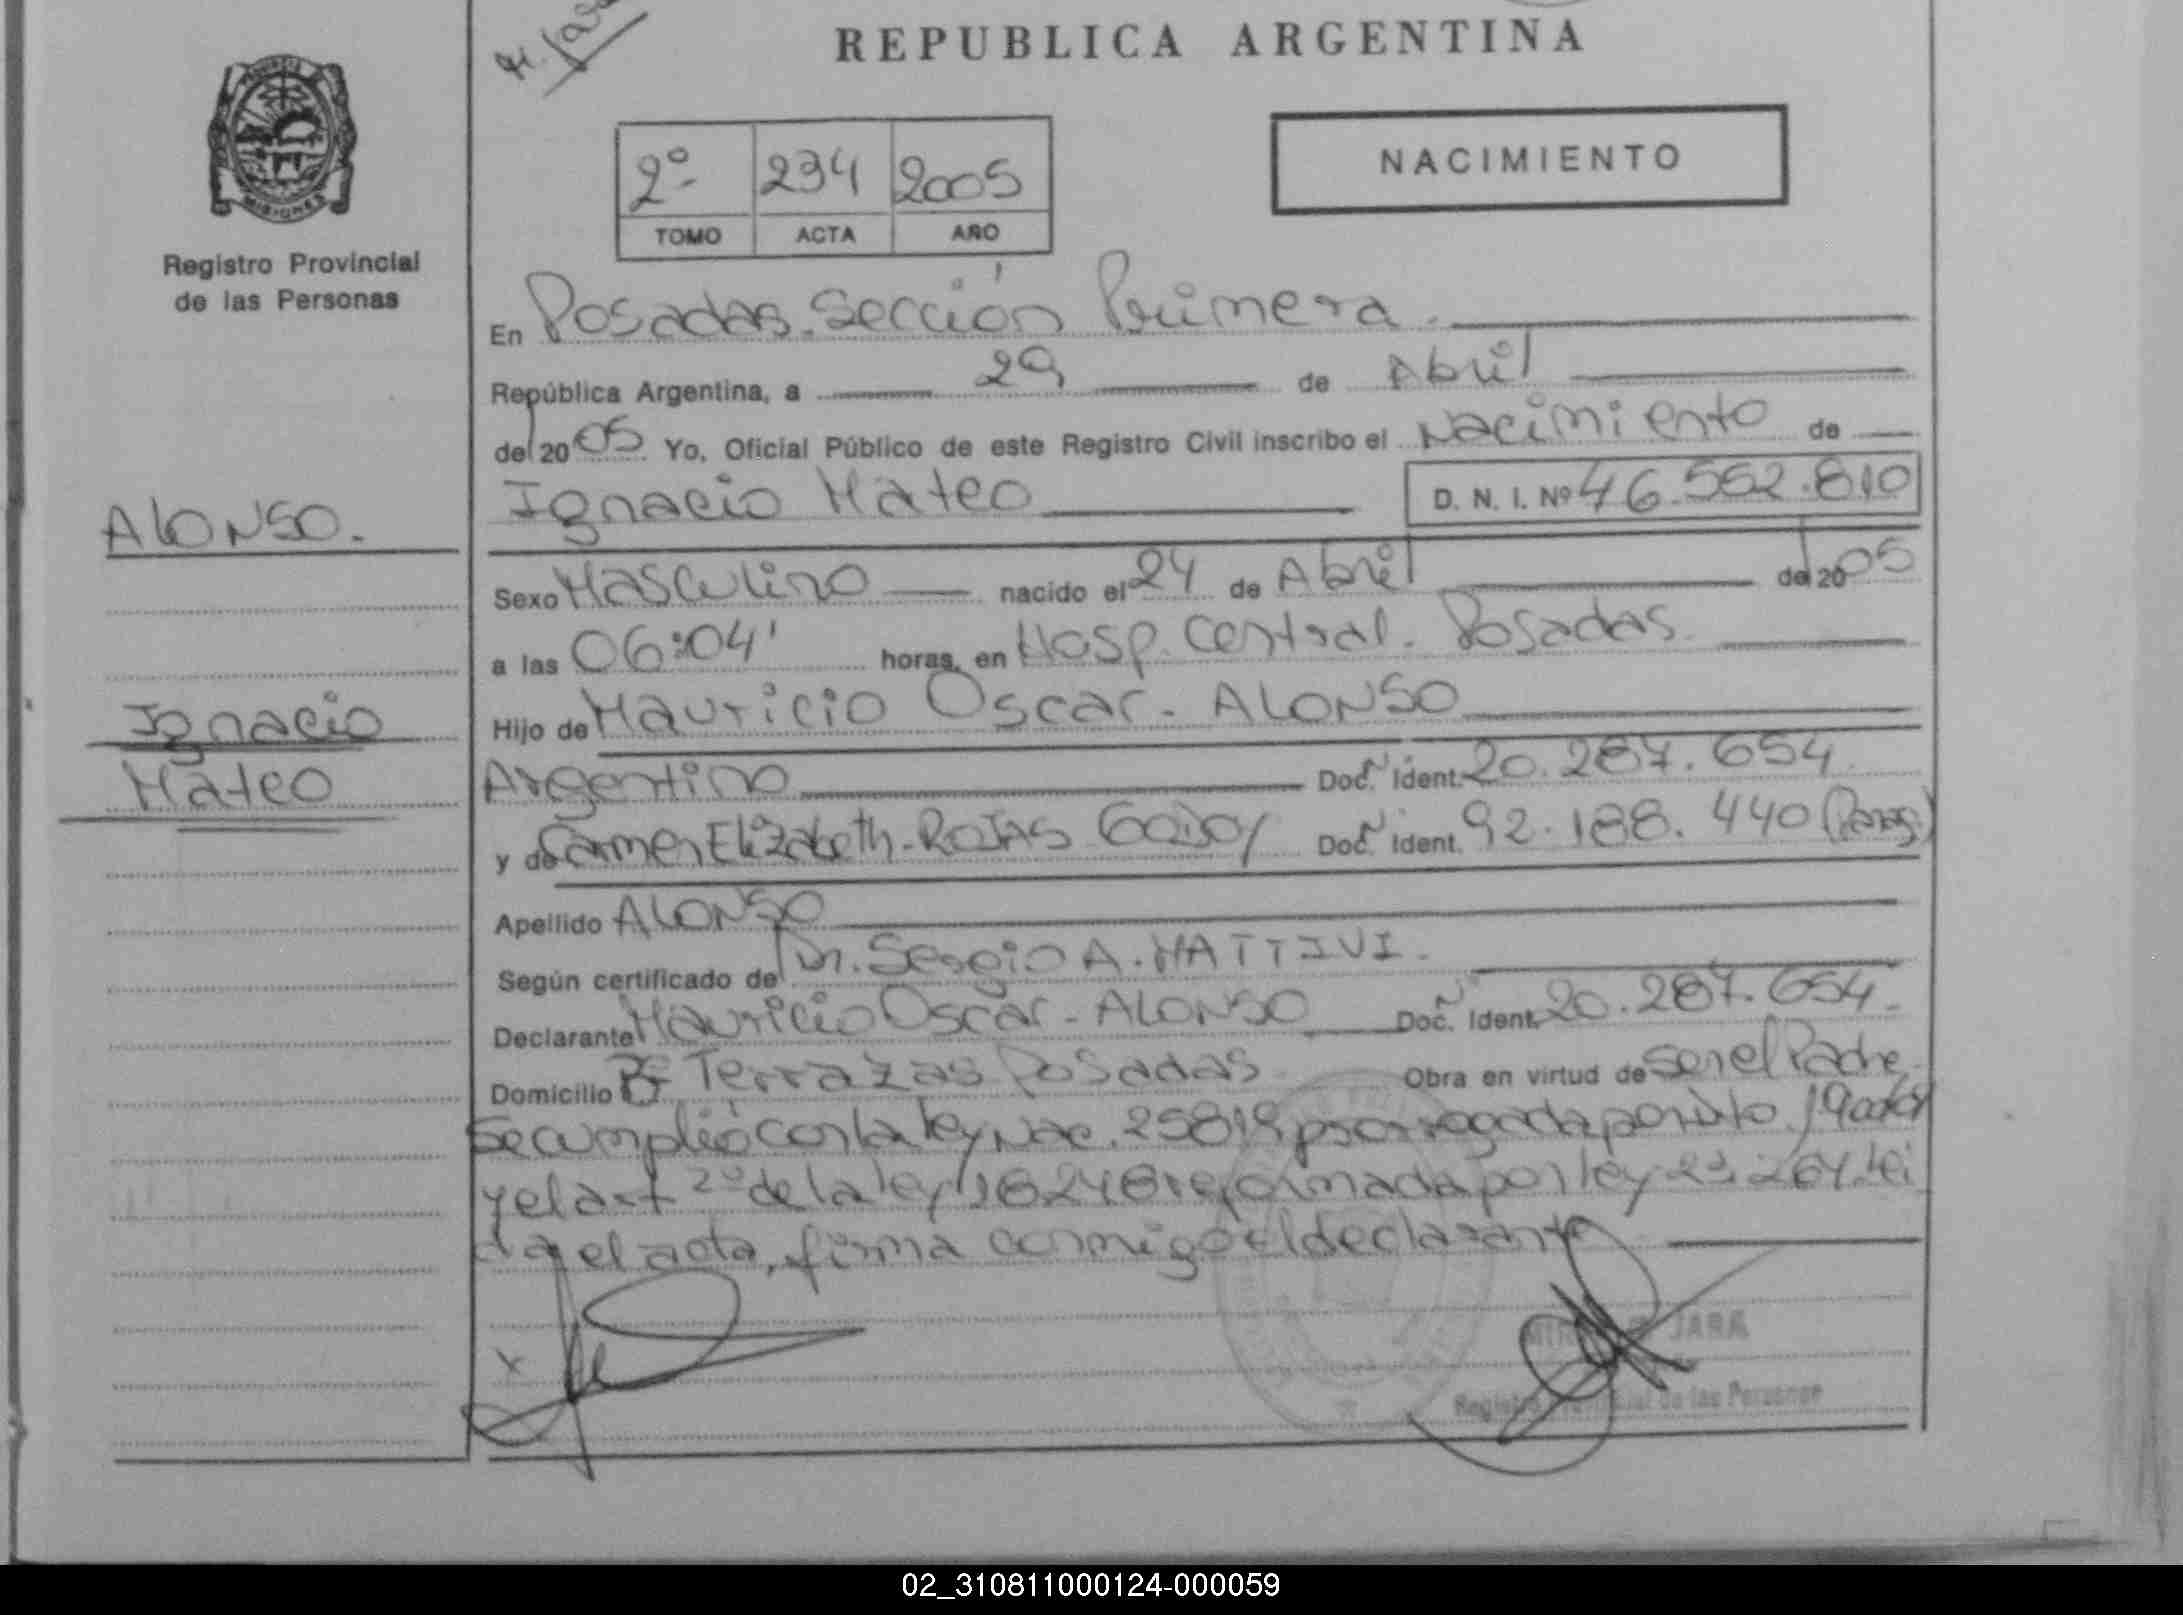 REPUBLICA ARGENTINA
MISIONES
Registro Provincial
de las Personas
2º 234 2005
TOMO ACTA AÑO
NACIMIENTO
En Posadas. Sección Primera.
República Argentina, a 29 de Abril
del 2005 Yo, Oficial Público de este Registro Civil inscribo el Nacimiento de
Ignacio Mateo D. N. I. Nº 46.552.810
ALONSO.
Ignacio
Mateo
Sexo Masculino nacido el 24 de Abril del 2005
a las 06:04' horas, en Hosp. Central. Posadas.
Hijo de Mauricio Oscar. ALONSO
Argentino Doc. Ident. 20.287.654
y de Carmen Elizabeth. ROJAS Godoy Doc. Ident. 92.188.440 (Parag.)
Apellido ALONSO
Según certificado de Dr. Sergio A. MATTIVI.
Declarante Mauricio Oscar. ALONSO Doc. Ident. 20.287.654.
Domicilio Terrazas Posadas Obra en virtud de ser el Padre.
Se cumplió con la ley Nac. 25819 prorrogada por
y el art 2º de la ley 18248 reformada por ley 23.264. Leí
da el acta, firma conmigo el declarante
x
JARA
Registro Provincial de las Personas
02_310811000124-000059